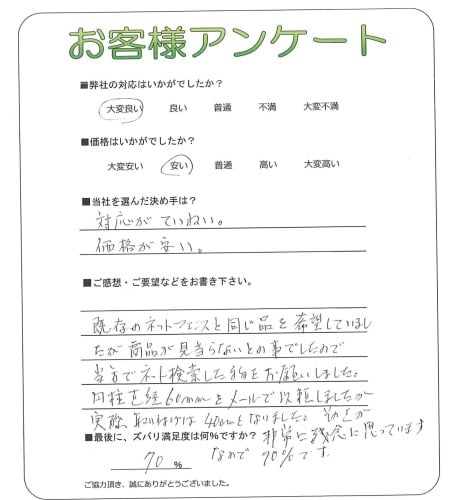 お客様アンケート
■弊社の対応はいかがでしたか?
大変良い 良い 普通 不満 大変不満
■価格はいかがでしたか?
大変安い 安い 普通 高い 大変高い
■当社を選んだ決め手は?
対応がていねい。
価格が安い。
■ご感想・ご要望などをお書き下さい。
既存のネットフェンスと同じ品を希望していまし
たが商品が見当らないとの事でしたので
当方でネット検索した物をお願いしました。
円柱直径60mmをメールで依頼しましたが
実際取り付けは40cmとなりました。 が
非常に残念に思っています
■最後に、ズバリ満足度は何%ですか?
70 % なので70%です。
ご協力頂き、誠にありがとうございました。